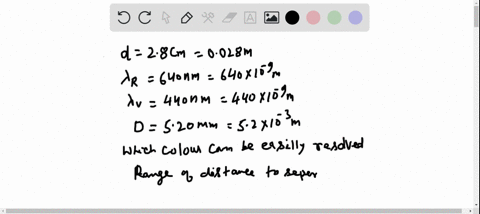 d = 2.8Cm = 0.028m
λR = 640nm = 640×10⁻⁹m
λv = 440nm = 440×10⁻⁹m
D = 5.20mm = 5.2×10⁻³m
which colour can be ersilly resolved
Range of distance to seper